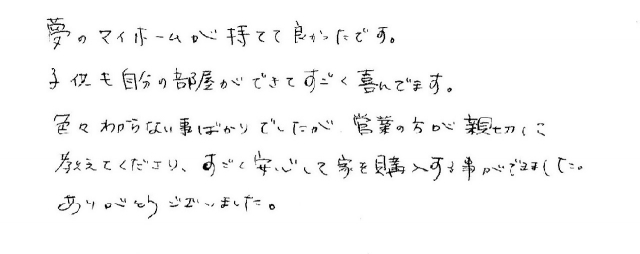 夢のマイホームが持てて良かったです。
子供も自分の部屋ができてすごく喜んでます。
色々わからない事ばかりでしたが、営業の方が親切に
教えてくださり、すごく安心して家を購入する事ができました。
ありがとうございました。